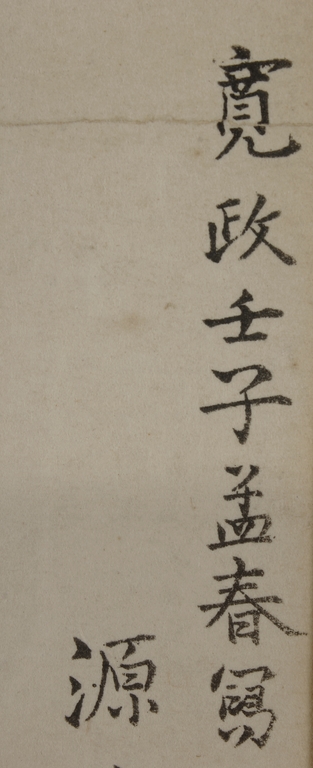 寛政壬子孟春寫
源